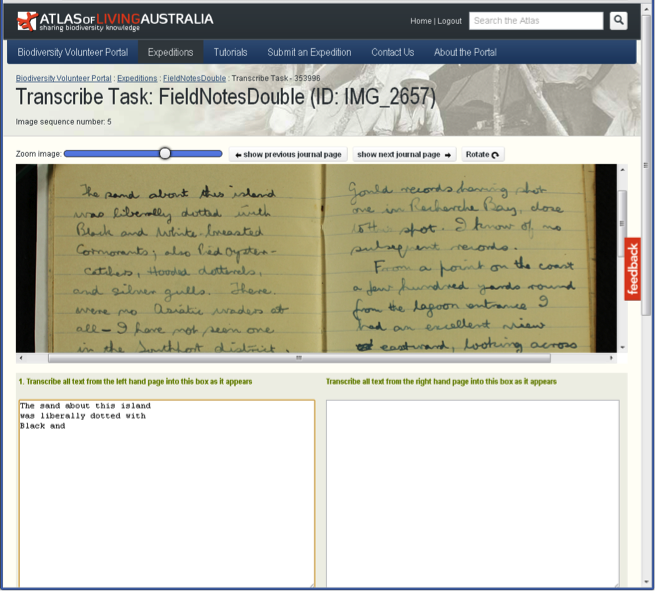 ATLAS OF LIVING AUSTRALIA
sharing biodiversity knowledge
Home | Logout
Search the Atlas
Biodiversity Volunteer Portal Expeditions Tutorials Submit an Expedition Contact Us About the Portal
Biodiversity Volunteer Portal : Expeditions : FieldNotesDouble : Transcribe Task - 353996
Transcribe Task: FieldNotesDouble (ID: IMG_2657)
Image sequence number: 5
Zoom image:
show previous journal page
show next journal page
Rotate
The sand about this island
was liberally dotted with
Black and White-breasted
Cormorants, also Pied Oyster-
catches, Hooded dotterels,
and silver gulls. There
were no Asiatic waders at
all - I have not seen one
in the Southport district.
Gould records having shot
one in Recherche Bay, close
to the spot. I know of no
subsequent records.
From a point on the coast
a few hundred yards round
from the lagoon entrance I
had an excellent view
eastward, looking across
feedback
1. Transcribe all text from the left hand page into this box as it appears
The sand about this island
was liberally dotted with
Black and
Transcribe all text from the right hand page into this box as it appears